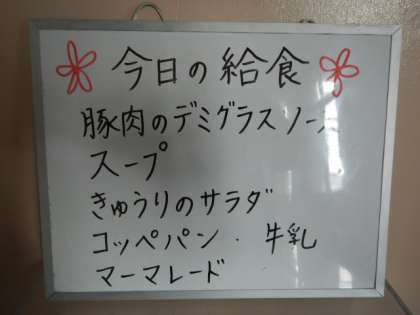 今日の給食
豚肉のデミグラスソース
スープ
きゅうりのサラダ
コッペパン・牛乳
マーマレード